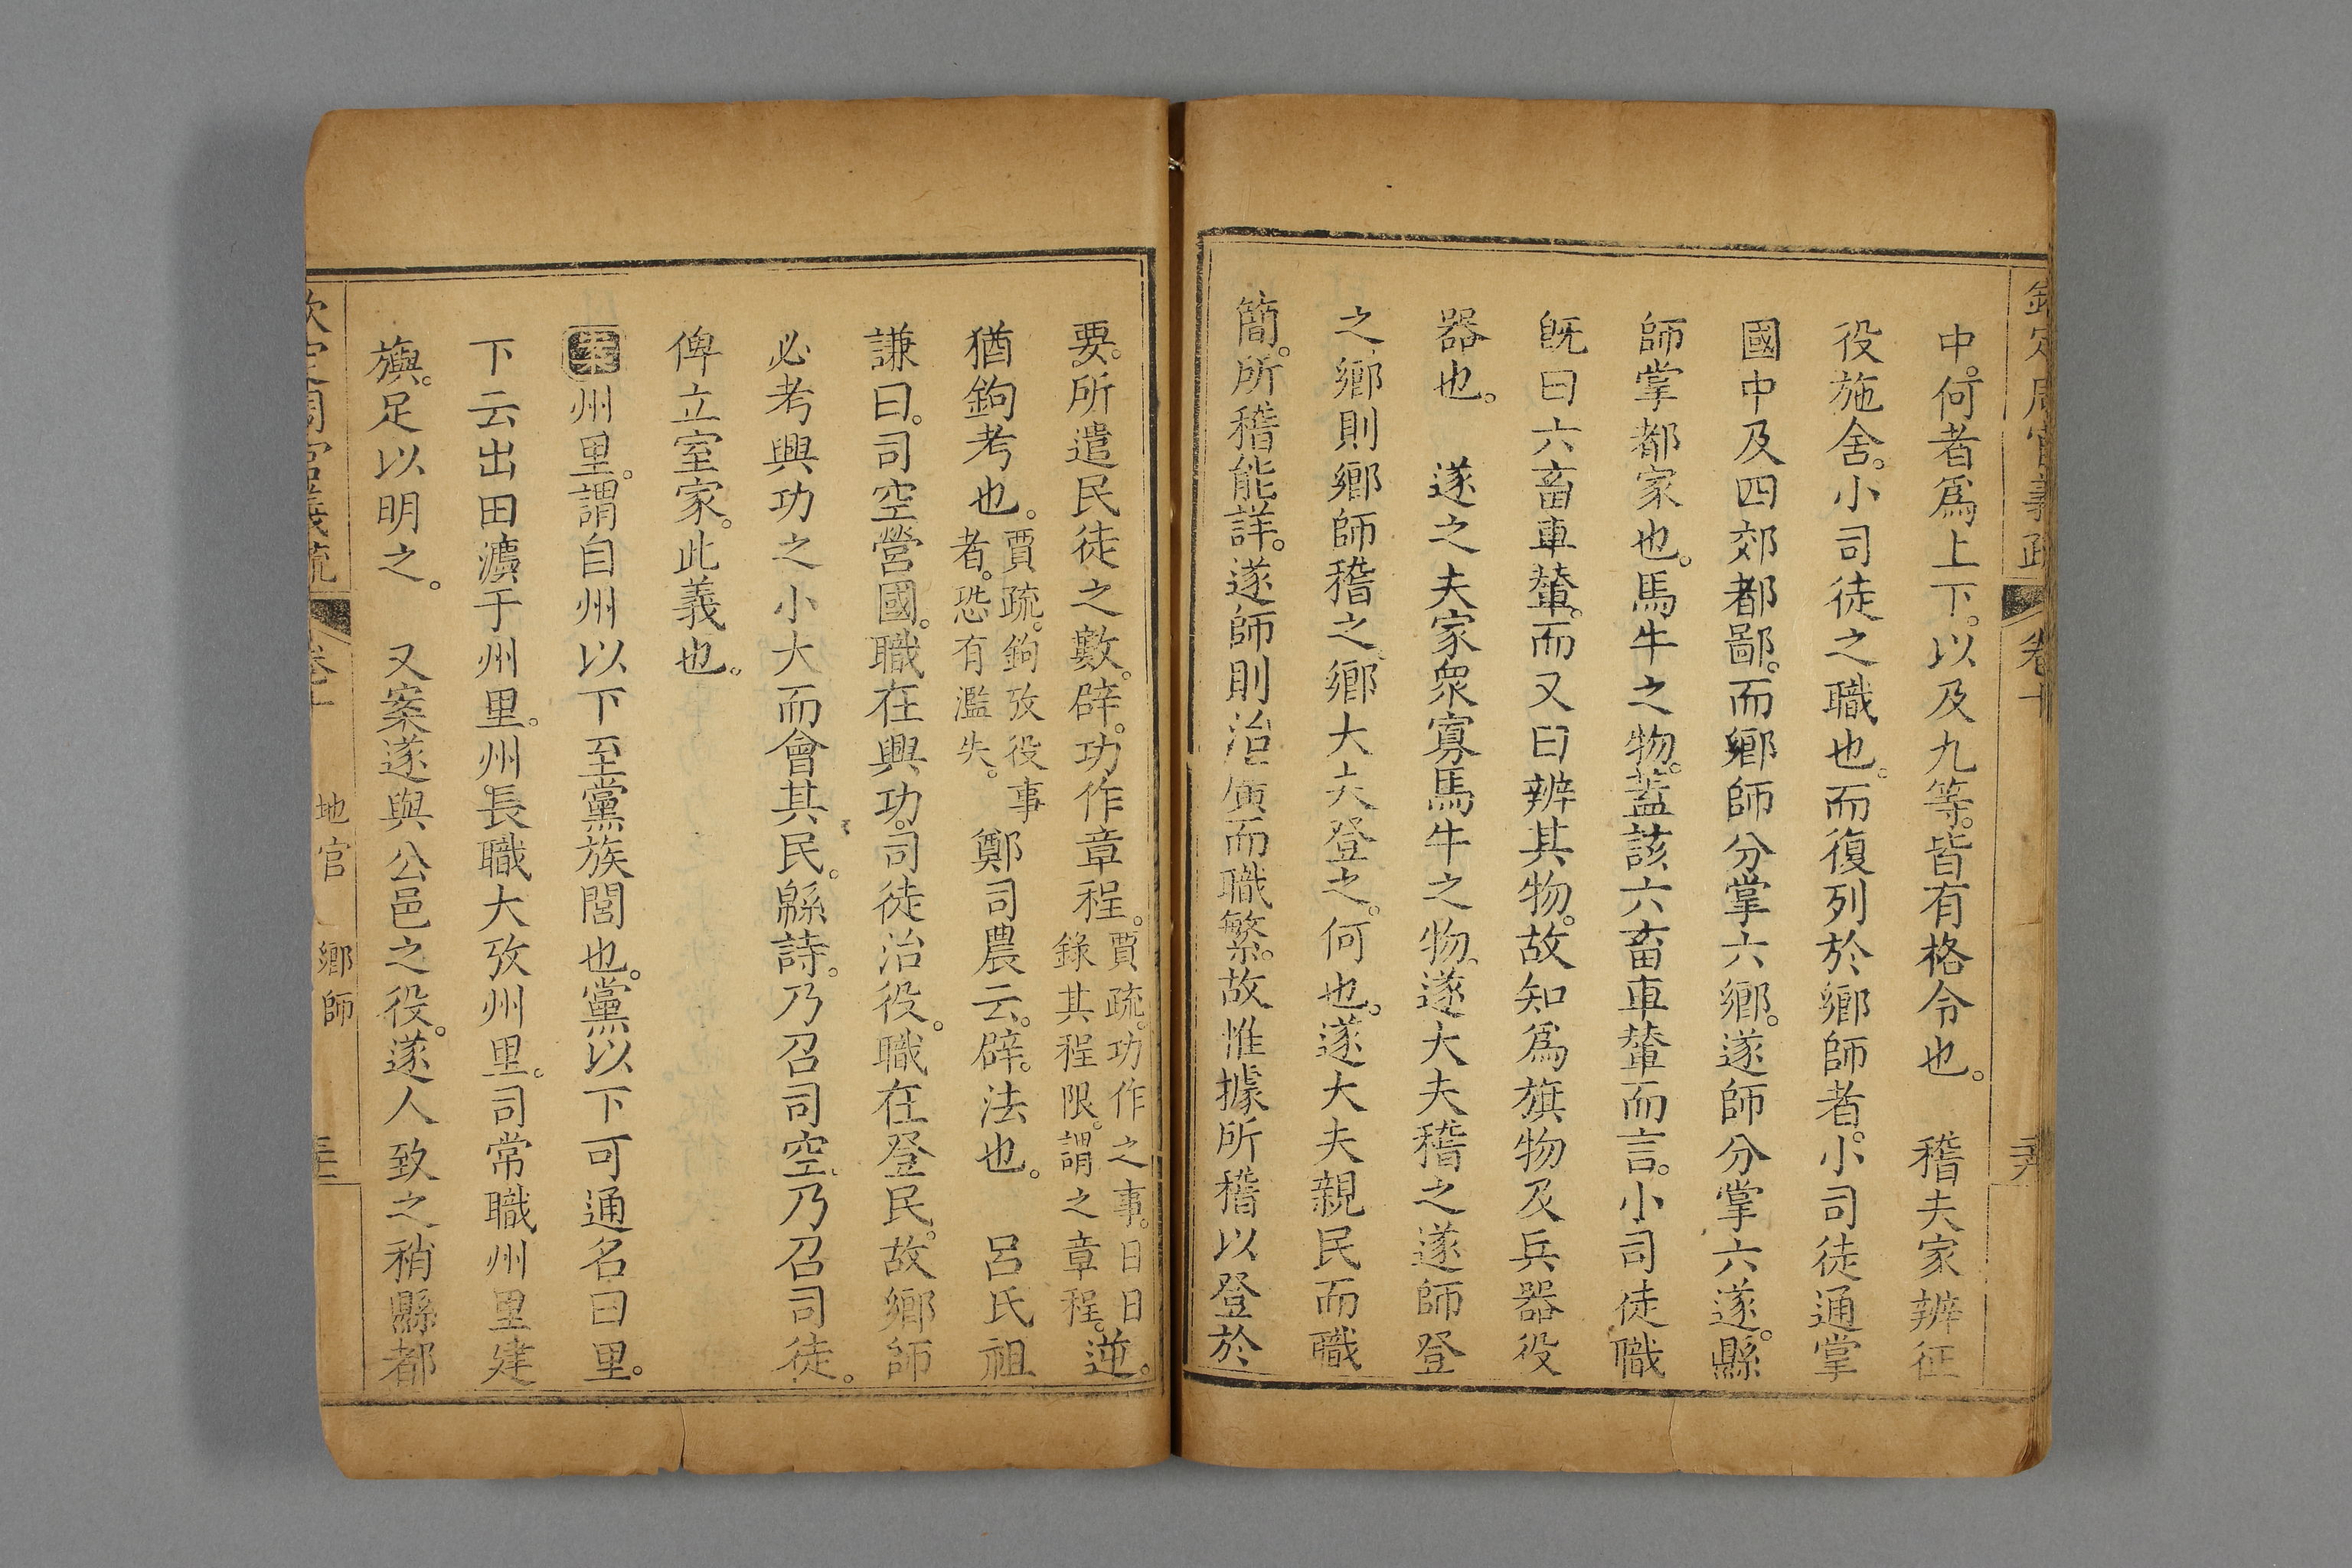 欽定周官義疏 卷十
中。何者爲上下。以及九等。皆有格令也。 稽夫家辨征
役施舍。小司徒之職也。而復列於鄉師者。小司徒通掌
國中及四郊都鄙。而鄉師分掌六鄉。遂師分掌六遂。縣
師掌都家也。馬牛之物。蓋該六畜車輦而言。小司徒職
旣曰六畜車輦。而又曰辨其物。故知爲旗物及兵器役
器也。 遂之夫家衆寡馬牛之物。遂大夫稽之遂師登
之。鄉則鄉師稽之。鄉大夫登之。何也。遂大夫親民而職
簡。所稽能詳。遂師則治廣而職繁。故惟據所稽以登於
要。所遣民徒之數。辟。功作章程。賈疏。功作之事。日日錄其程限。謂之章程。逆。
猶鉤考也。賈疏。鉤攷役事者。恐有濫失。 鄭司農云。辟。法也。 呂氏祖
謙曰。司空營國。職在興功。司徒治役。職在登民。故鄉師
必考興功之小大而會其民。緜詩。乃召司空。乃召司徒。
俾立室家。此義也。
案州里。謂自州以下至黨族閭也。黨以下可通名曰里。
下云出田灋于州里。州長職大攷州里。司常職州里建
旟。足以明之。 又案遂與公邑之役。遂人致之稍縣都
欽定周官義疏 卷十 地官 鄉師